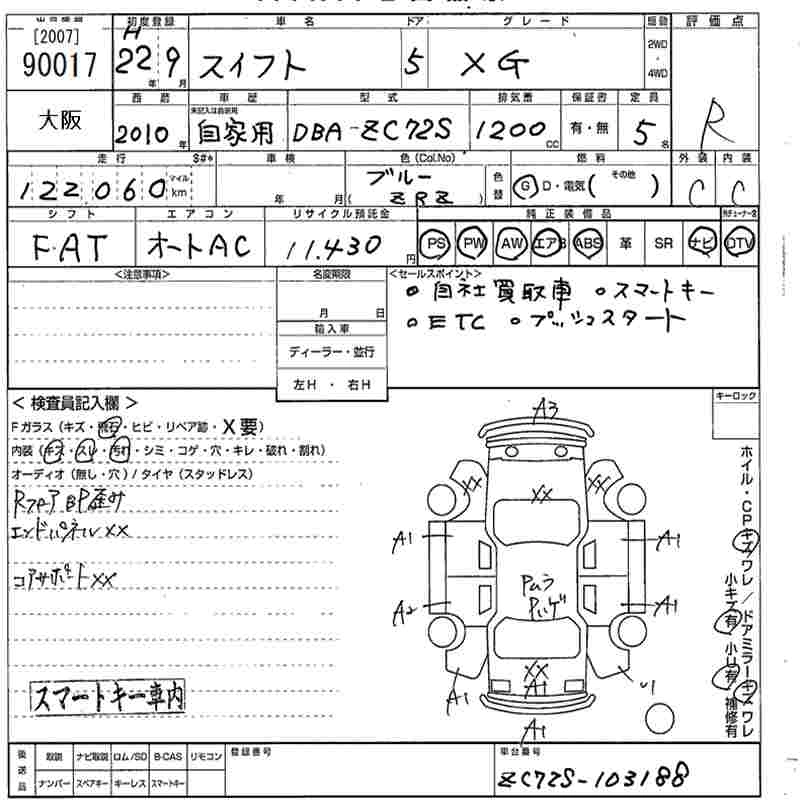 [2007] 初度登録 車名 ドア グレード 駆動 評価点
90017 H22年 9月 スイフト 5 XG 2WD・4WD R
大阪
西暦 車歴 型式 排気量 保証書 定員
未記入は自家用
2010年 自家用 DBA-ZC72S 1200CC 有・無 5名
走行 S#* 車検 色(Col.No) 燃料 外装 内装
122,060 マイル km 年 月 ブルー (ZRZ) 色替 G D・電気( その他 ) C C
シフト エアコン リサイクル預託金 純正装備品
FAT オートAC 11,430円 PS PW AW エアB ABS 革 SR ナビ DTV
<注意事項> 名変期限 <セールスポイント>
月 日 ○自社買取車 ○スマートキー
輸入車 ○ETC ○プッシュスタート
ディーラー・並行
左H・右H
<検査員記入欄> キーロック
Fガラス(キズ・飛石・ヒビ・リペア跡・X要)
内装(キズ・スレ・汚れ・シミ・コゲ・穴・キレ・破れ・割れ)
オーディオ(無し・穴)/タイヤ(スタッドレス)
RフロアBP歪み
エンドパネルXX
コアサポートXX
スマートキー車内
A3
XX XX XX
A1 A1
Pムラ
A2 A1
XX
A1 A1
A1
ホイル・CPキズワレ/ドアミラーキズワレ
小キズ有・小U有・補修有
後送品 取説 ナビ取説 ロム/SD B-CAS リモコン 登録番号 車台番号
ナンバー スペアキー キーレス スマートキー ZC72S-103188